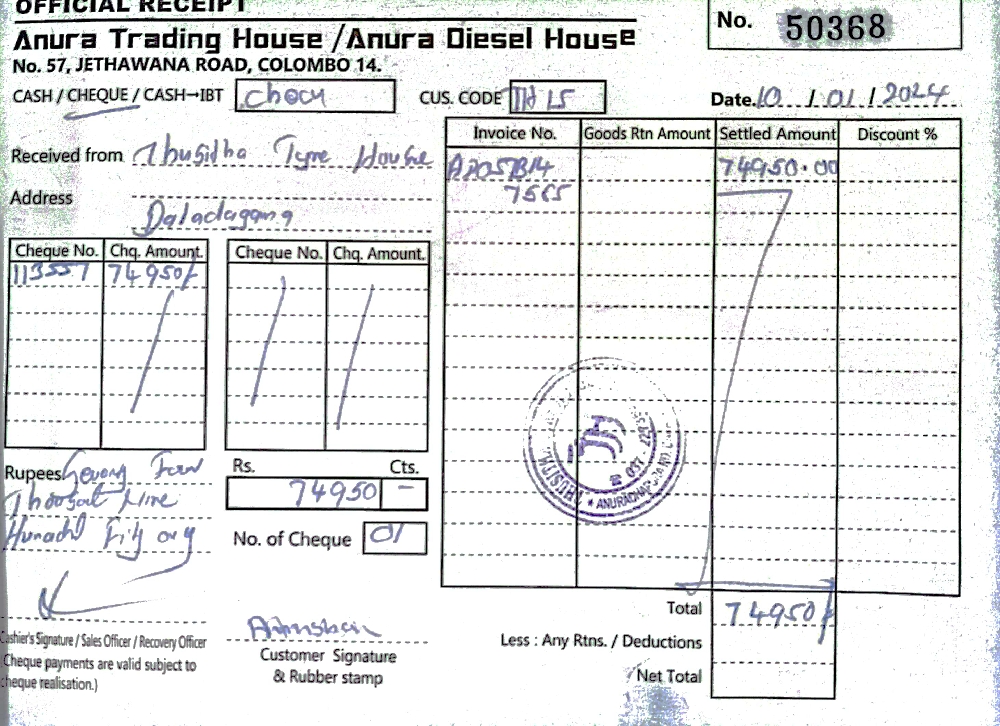 OFFICIAL RECEIPT
Anura Trading House /Anura Diesel House
No. 57, JETHAWANA ROAD, COLOMBO 14.
No. 50368
CASH / CHEQUE / CASH→IBT
CUS. CODE TH 15
Date. 10 / 01 / 2024
Received from Thusidha Tyre House
Address
Daladagama
Cheque No. Chq. Amount. Cheque No. Chq. Amount.
113557 74950/-
Invoice No. Goods Rtn Amount Settled Amount Discount %
74950.00
7565
Rupees
Rs. Cts.
74950 -
No. of Cheque 01
Total 74950/-
Less : Any Rtns. / Deductions
Net Total
Cashier's Signature / Sales Officer / Recovery Officer
Cheque payments are valid subject to
cheque realisation.)
Customer Signature
& Rubber stamp